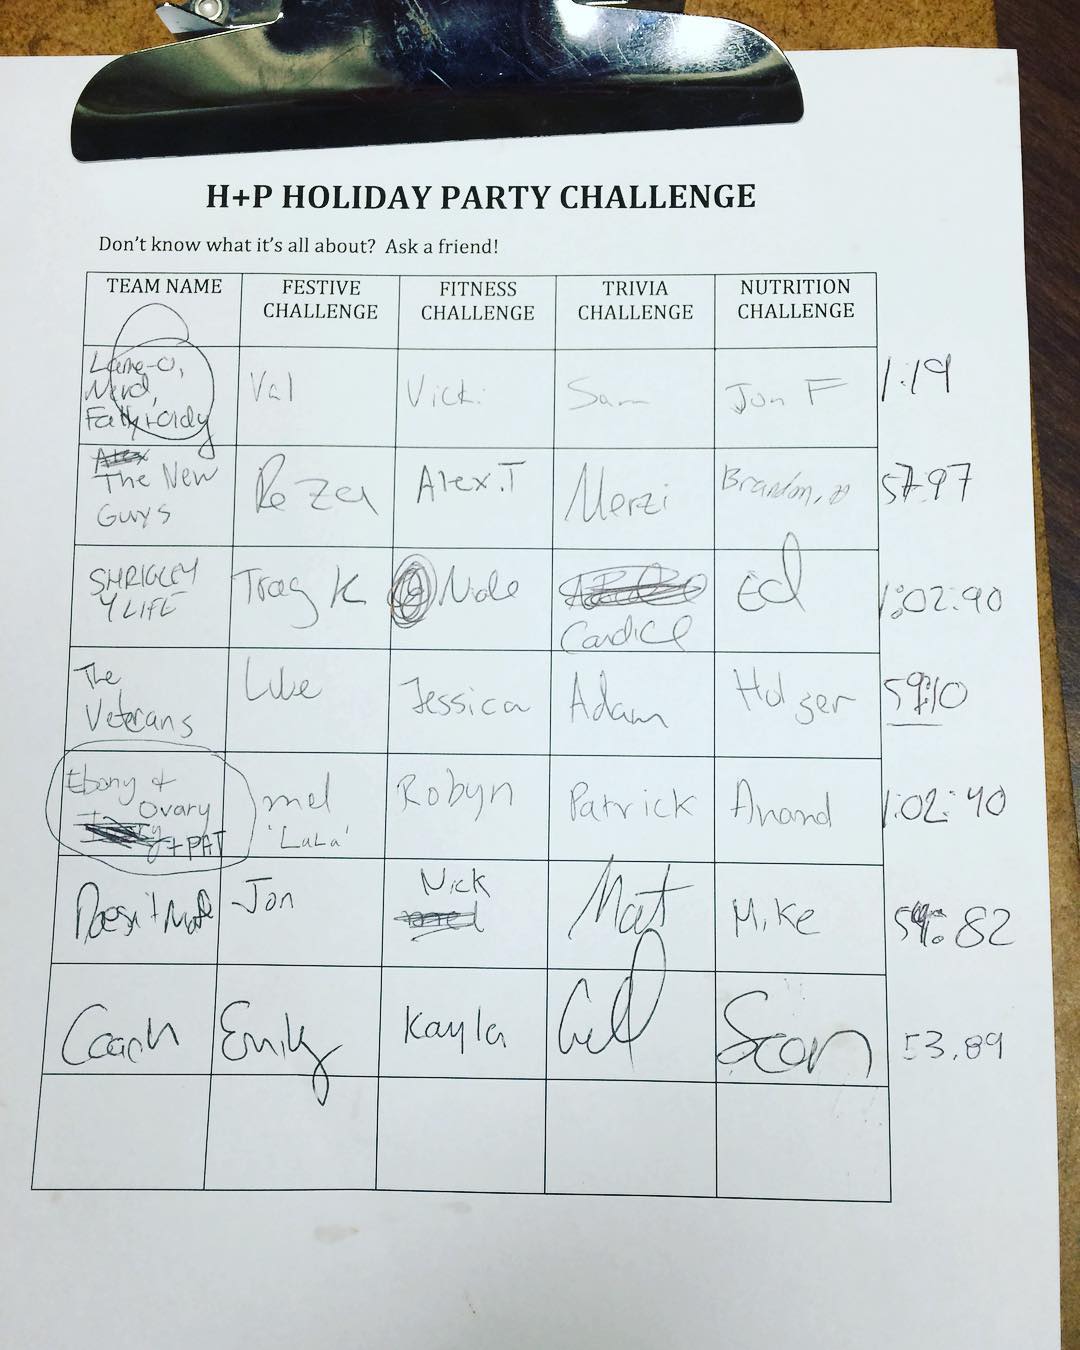 H+P HOLIDAY PARTY CHALLENGE
Don't know what it's all about? Ask a friend!
TEAM NAME
FESTIVE
CHALLENGE
FITNESS
CHALLENGE
TRIVIA
CHALLENGE
NUTRITION
CHALLENGE
Lame-O,
Nerd,
Val
Vicki
Sam
Jon F
1:19
The New
Guys
Reza
Alex.T
Merzi
Brandon,
57:97
SHRIGLEY
4 LIFE
K
Nicole
Candice
Ed
1:02:90
The
Veterans
Luke
Jessica
Adam
Holger
59:10
Ebony +
Ovary
+ PAT
mel
'LaLa'
Robyn
Patrick
Anand
1:02:40
Doesn't
Jon
Nick
Mat
Mike
:82
Coach
Emily
Kayla
Sean
53.89